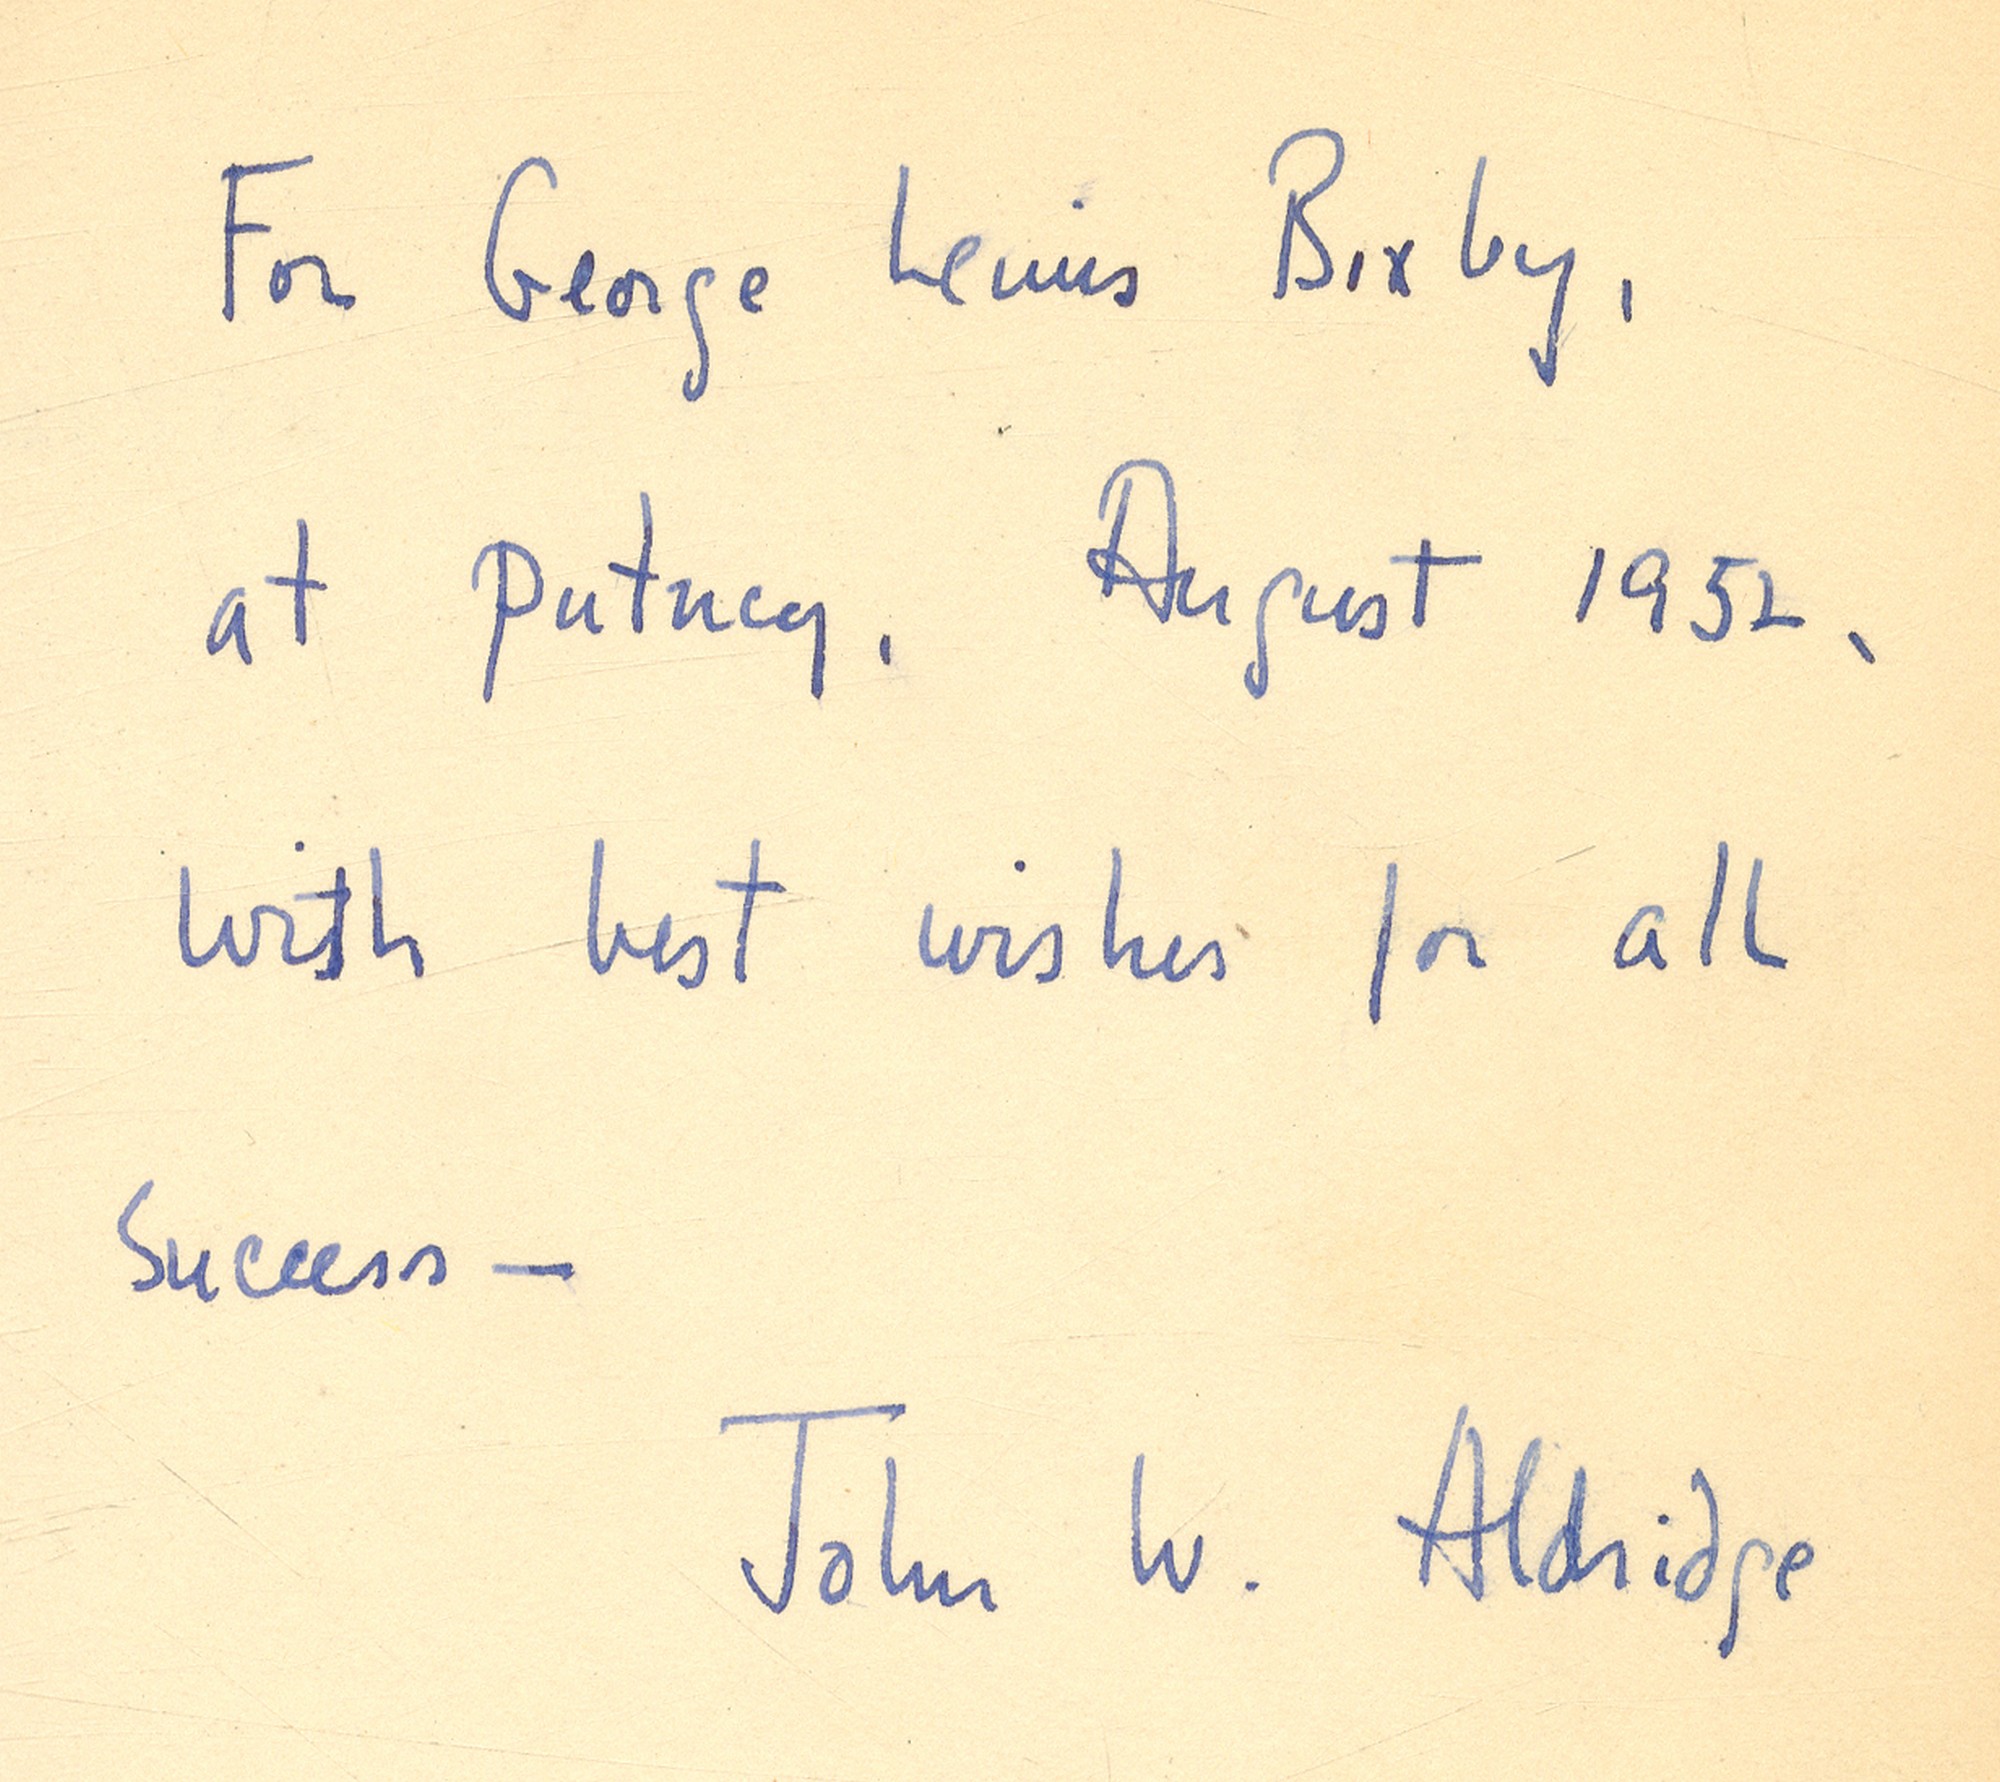 For George Lewis Bixby,
at Putney, August 1952,
with best wishes for all
Success —
John W. Aldridge